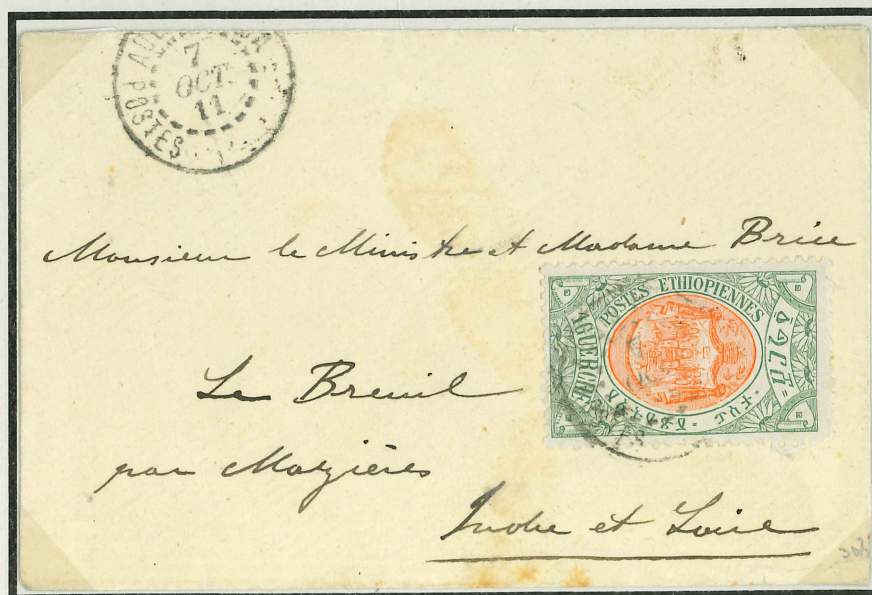 POSTES
7
OCT.
11
Monsieur le Ministre et Madame Brice
POSTES ETHIOPIENNES
1 GUERCHE
Le Breuil
par Mazières
Indre et Loire